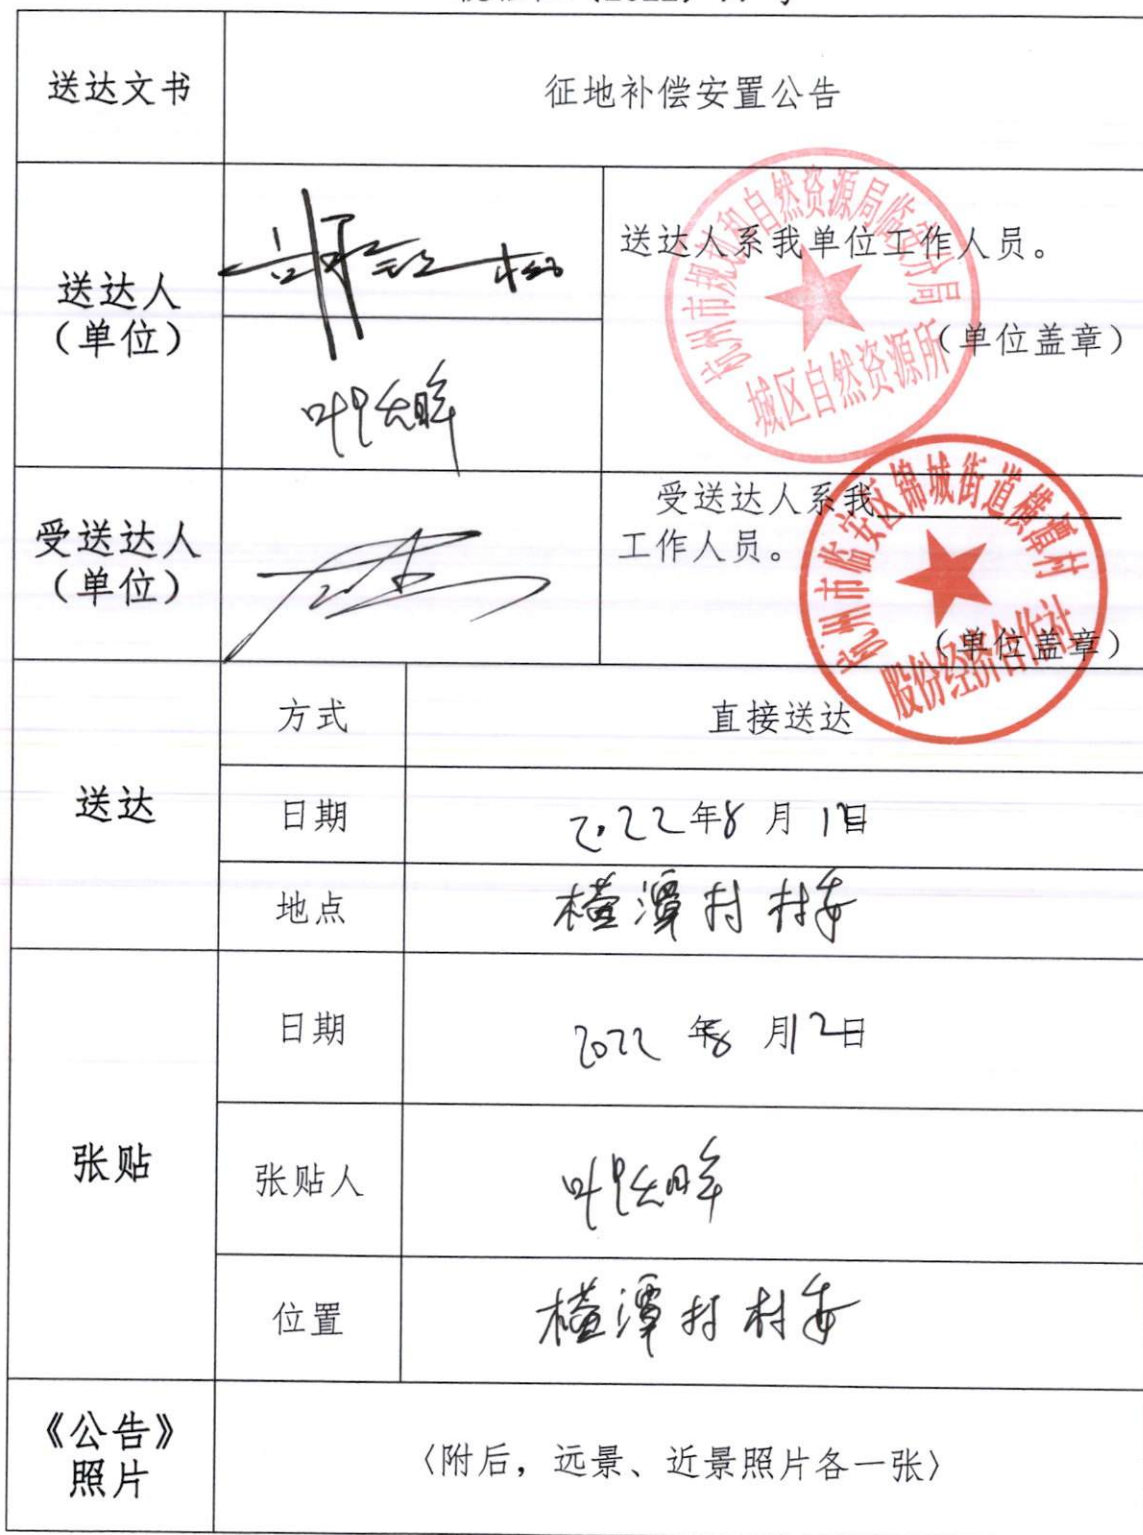 送达文书
征地补偿安置公告
送达人
（单位）
送达人系我单位工作人员。
（单位盖章）
杭州市规划和自然资源局临安分局
城区自然资源所
受送达人
（单位）
受送达人系我
工作人员。
（单位盖章）
杭州市临安区锦城街道横潭村
股份经济合作社
送达
方式
直接送达
日期
2022年8月12日
地点
横潭村村委
张贴
日期
2022年8月12日
张贴人
位置
横潭村村委
《公告》
照片
〈附后，远景、近景照片各一张〉